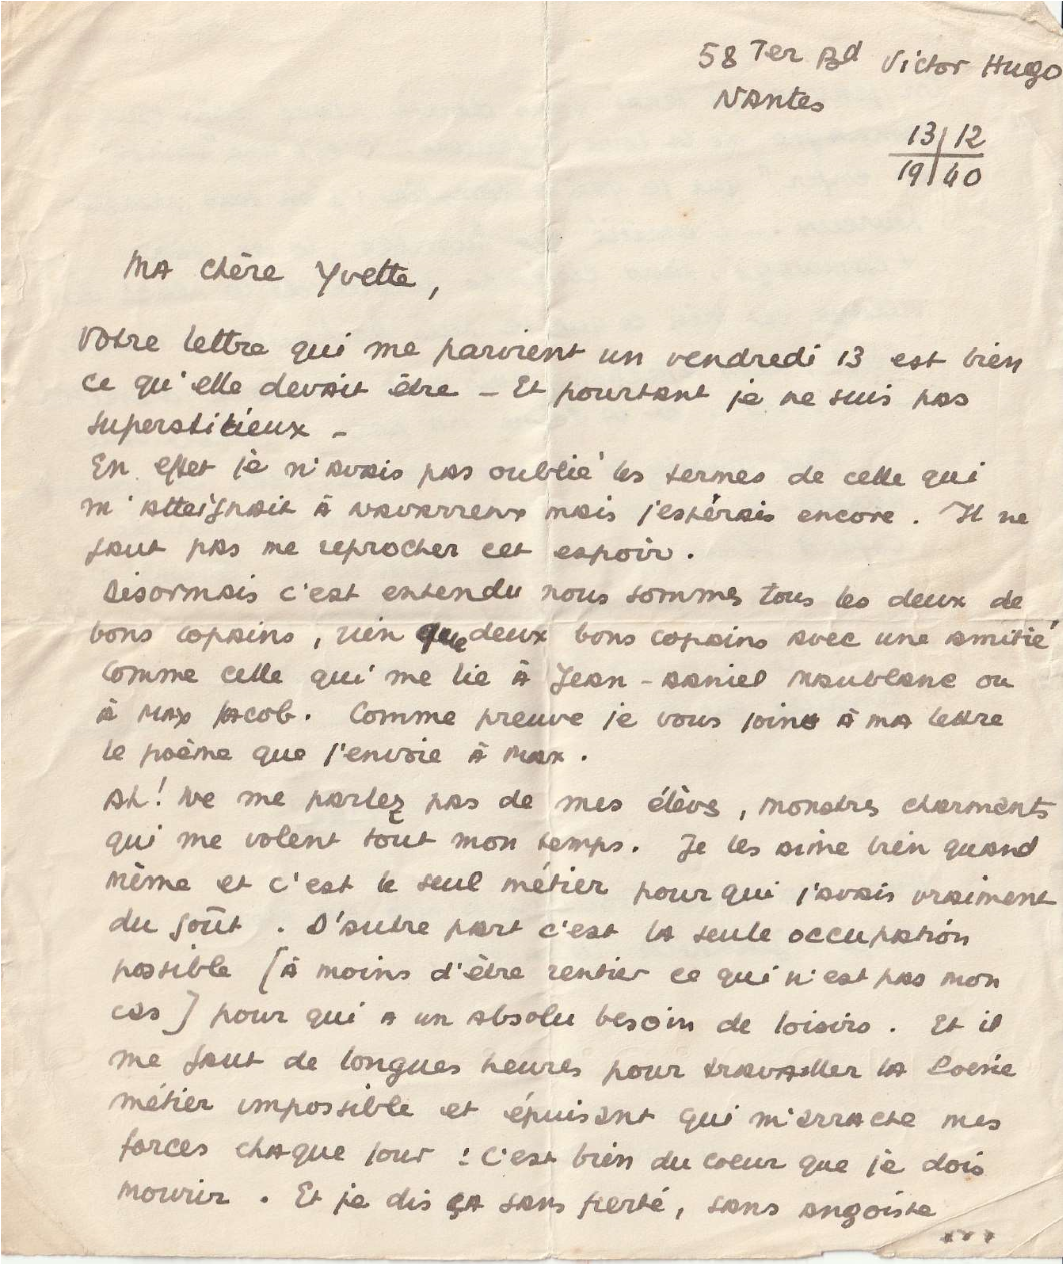 58 Ter Bd Victor Hugo
Nantes
13/12
19/40
Ma chère Yvette,
Votre lettre qui me parvient un vendredi 13 est bien
ce qu'elle devait être - Et pourtant je ne suis pas
superstitieux -
En effet je n'avais pas oublié les termes de celle qui
m'atteignait à Navarrenx mais j'espérais encore. Il ne
faut pas me reprocher cet espoir.
Désormais c'est entendu nous sommes tous les deux de
bons copains, rien que deux bons copains avec une amitié
comme celle qui me lie à Jean-Daniel Maublanc ou
à Max Jacob. Comme preuve je vous joins à ma lettre
le poème que j'envoie à Max.
Ah! Ne me parlez pas de mes élèves, monstres charmants
qui me volent tout mon temps. Je les aime bien quand
même et c'est le seul métier pour qui j'avais vraiment
du goût. D'autre part c'est la seule occupation
possible (à moins d'être rentier ce qui n'est pas mon
cas) pour qui a un absolu besoin de loisirs. Et il
me faut de longues heures pour travailler la Poésie
métier impossible et épuisant qui m'arrache mes
forces chaque jour : c'est bien du coeur que je dois
mourir. Et je dis ça sans fierté, sans angoisse
...